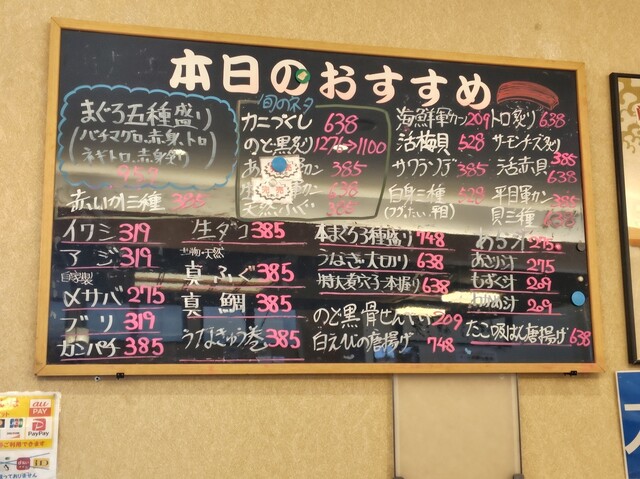 本日のおすすめ
まぐろ五種盛り
(バチマグロ、赤身、トロ
ネギトロ、赤身
赤いか三種 385
イワシ 319
アジ 319
自家製
〆サバ 275
ブリ 319
カンパチ 385
生ダコ 385
天然
真ふぐ 385
真鯛 385
うなきゅう巻 385
旬のネタ
カニづくし 638
のど黒炙り 1276→1100
カン 385
638
385
海鮮軍カン 209
活梅貝 528
サワラ 385
白身三種 528
トロ炙り 638
サーモンチーズ炙り 385
活赤貝 638
平目軍カン 385
貝三種 638
本まぐろ3種盛り 748
うなぎ一本 638
特大煮穴子一本握り 638
のど黒骨せんべい 209
白えびの唐揚げ 748
あら汁 275
あさり汁 275
もずく汁 209
わかめ汁 209
たこ吸ばん唐揚げ 638
au
PAY
PayPay
ご利用できます